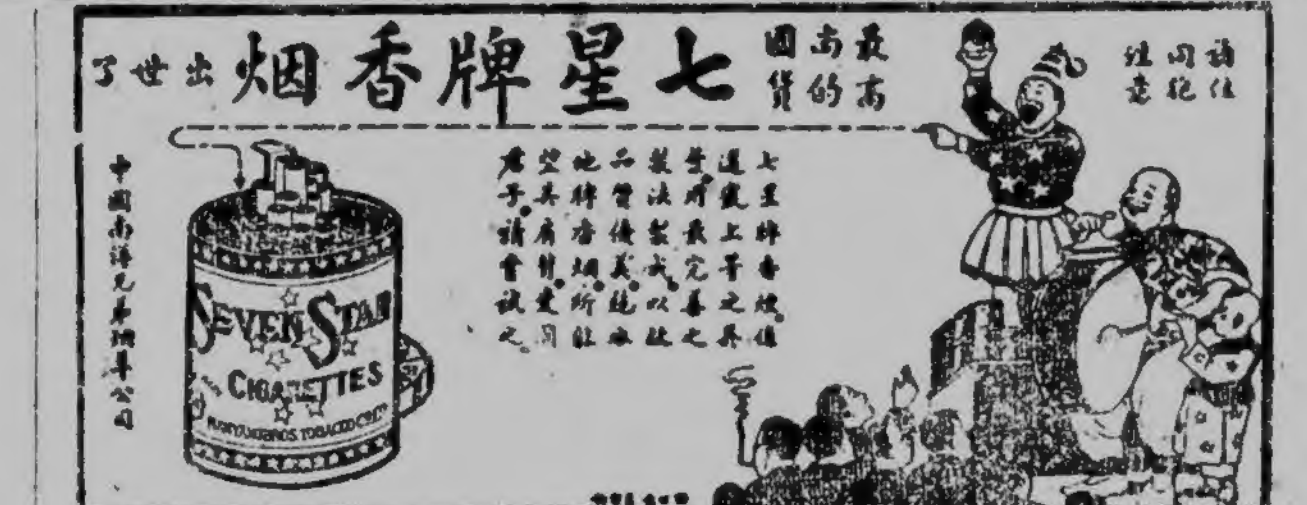 諸位
同胞
注意
最高
尚的
國貨
七星牌香烟
出世了
七星牌香烟係
選最上等之菸
葉用最完善之
製法製成以故
品質優美絕非
他牌香烟所能
望其肩背愛國
君子請嘗試之
中國南洋兄弟烟草公司
SEVEN STAR
CIGARETTES
NANYANG BROS. TOBACCO CO. LTD